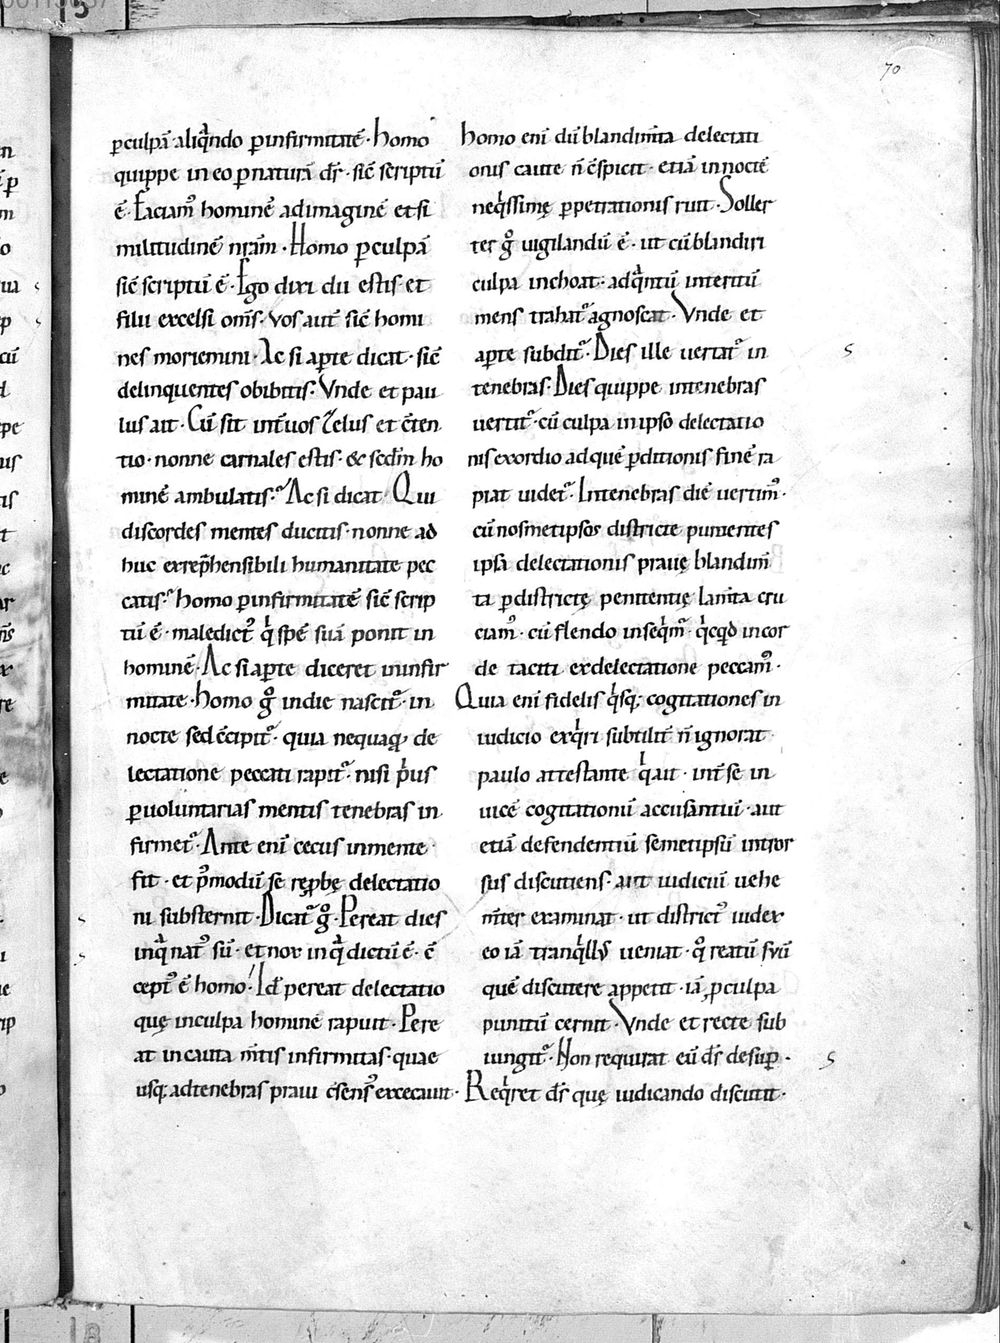 70
ꝑculpā· aliqͣndo ꝑinfirmitatē· homo
quippe in eo ꝑnaturā dr̄· sic̄ scriptū
ē· Faciam᷒ hominē adimaginē et si
militudinē nr̄am· Homo ꝑculpā
sic̄ scriptū ē· Ego dixi dii estis· et
filii excelsi om̄s· vos aut̄ sic̄ homi
nes moriemini· Ac si aꝑte dicat· sic̄
delinquentes obibitis· Vnde et pau
lus ait· Cū sit int̄ uos Zelus et c̄ten
tio· nonne carnales estis· & secd̄m ho
minē ambulatis· Ac si dicat· Qui
discordes mentes ducitis· nonne ad
huc exrep̄hensibili humanitate pec
catis· homo ꝑinfirmitatē sic̄ scrip
tū ē· maledict᷒ qͥ spē suā ponit in
hominē· Ac si aꝑte diceret in infir
mitate· homo gͦ in die nascit᷑· in
nocte sed c̄cipit᷑· quia nequaqͣ de
lectatione peccati rapit᷑· nisi pͥus
ꝑ uoluntarias mentis tenebras in
firmet᷑· Ante eni̅ cecus in mente
fit· et p᷒modū se reꝓbę delectatio
ni substernit· Dicat᷑ gͦ· Pereat dies
inqͣ nat᷒ sū· et nox in qͣ dictū ē· c̄
cept᷒ ē homo· Id ē pereat delectatio
quę in culpa hominē rapuit· Pere
at incauta m̄tis infirmitas· quae
usq; adtenebras praui c̄sens᷒ excecauit·
homo eni̅ dū blandim̄ta delectati
onis caute n̄ c̄spicit· etiā in nocte̅
neqͥssimę ꝑpetrationis ruit· Soller
ter gͦ uigilandū ē· ut cū blandiri
culpa inchoat· ad qͣntū interitū
mens trahat᷑ agnoscat· Vnde et
aꝑte subdit᷑· Dies ille uertat᷑ in
tenebras· Dies quippe in tenebras
uertit᷑· cū culpa in ipso delectatio
nis exordio ad quē ꝑditionis finē ra
piat uidet᷑· In tenebras diē uertim᷒·
cū nosmetipsos districte punientes
ipsa delectationis prauę blandim̄
ta ꝑ districtę penitentię lam̄ta cru
ciam᷒· cū flendo inseqͥm᷒· qͥcqͥd in cor
de taciti ex delectatione peccam᷒·
Quia eni̅ fidelis qͥsq; cogitationes in
iudicio exqͥri subtilit̄ n̄ ignorat
paulo attestante qͥ ait· int̄ se in
uicē cogitationū accusantiū· aut
etiā defendentiū semetipsū intror
sus discutiens· ant iudiciū uehe
m̄ter examinat· ut district᷒ iudex
eo iā tranqͥll᷒ ueniat· qͦ reatū suū
quē discutere appetit· iā ꝓ culpa
punitū cernit· Vnde et recte sub
iungit᷑· Non requirat eū ds̄ desuꝑ·
Reqͥret ds̄ quę iudicando discutit·